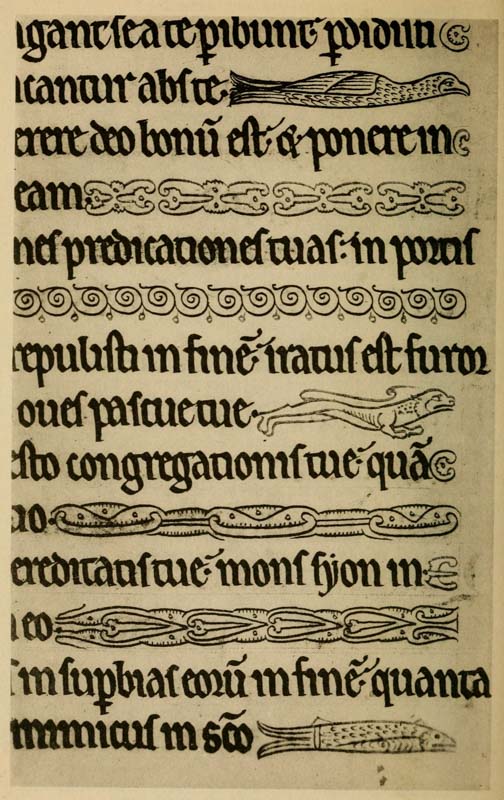 ngant se a te ꝑibunt ꝑdidiſti
icantur abs te.
erere deo bonū est & ponere in
eam
nes predicationes tuas: in portis
repulisti in finē iratus est furor
oues pascue tue.
esto congregationis tue quā
tio.
ereditatis tue mons syon in
n eo.
in suꝑbias eorū in finē quanta
inimicus in scō